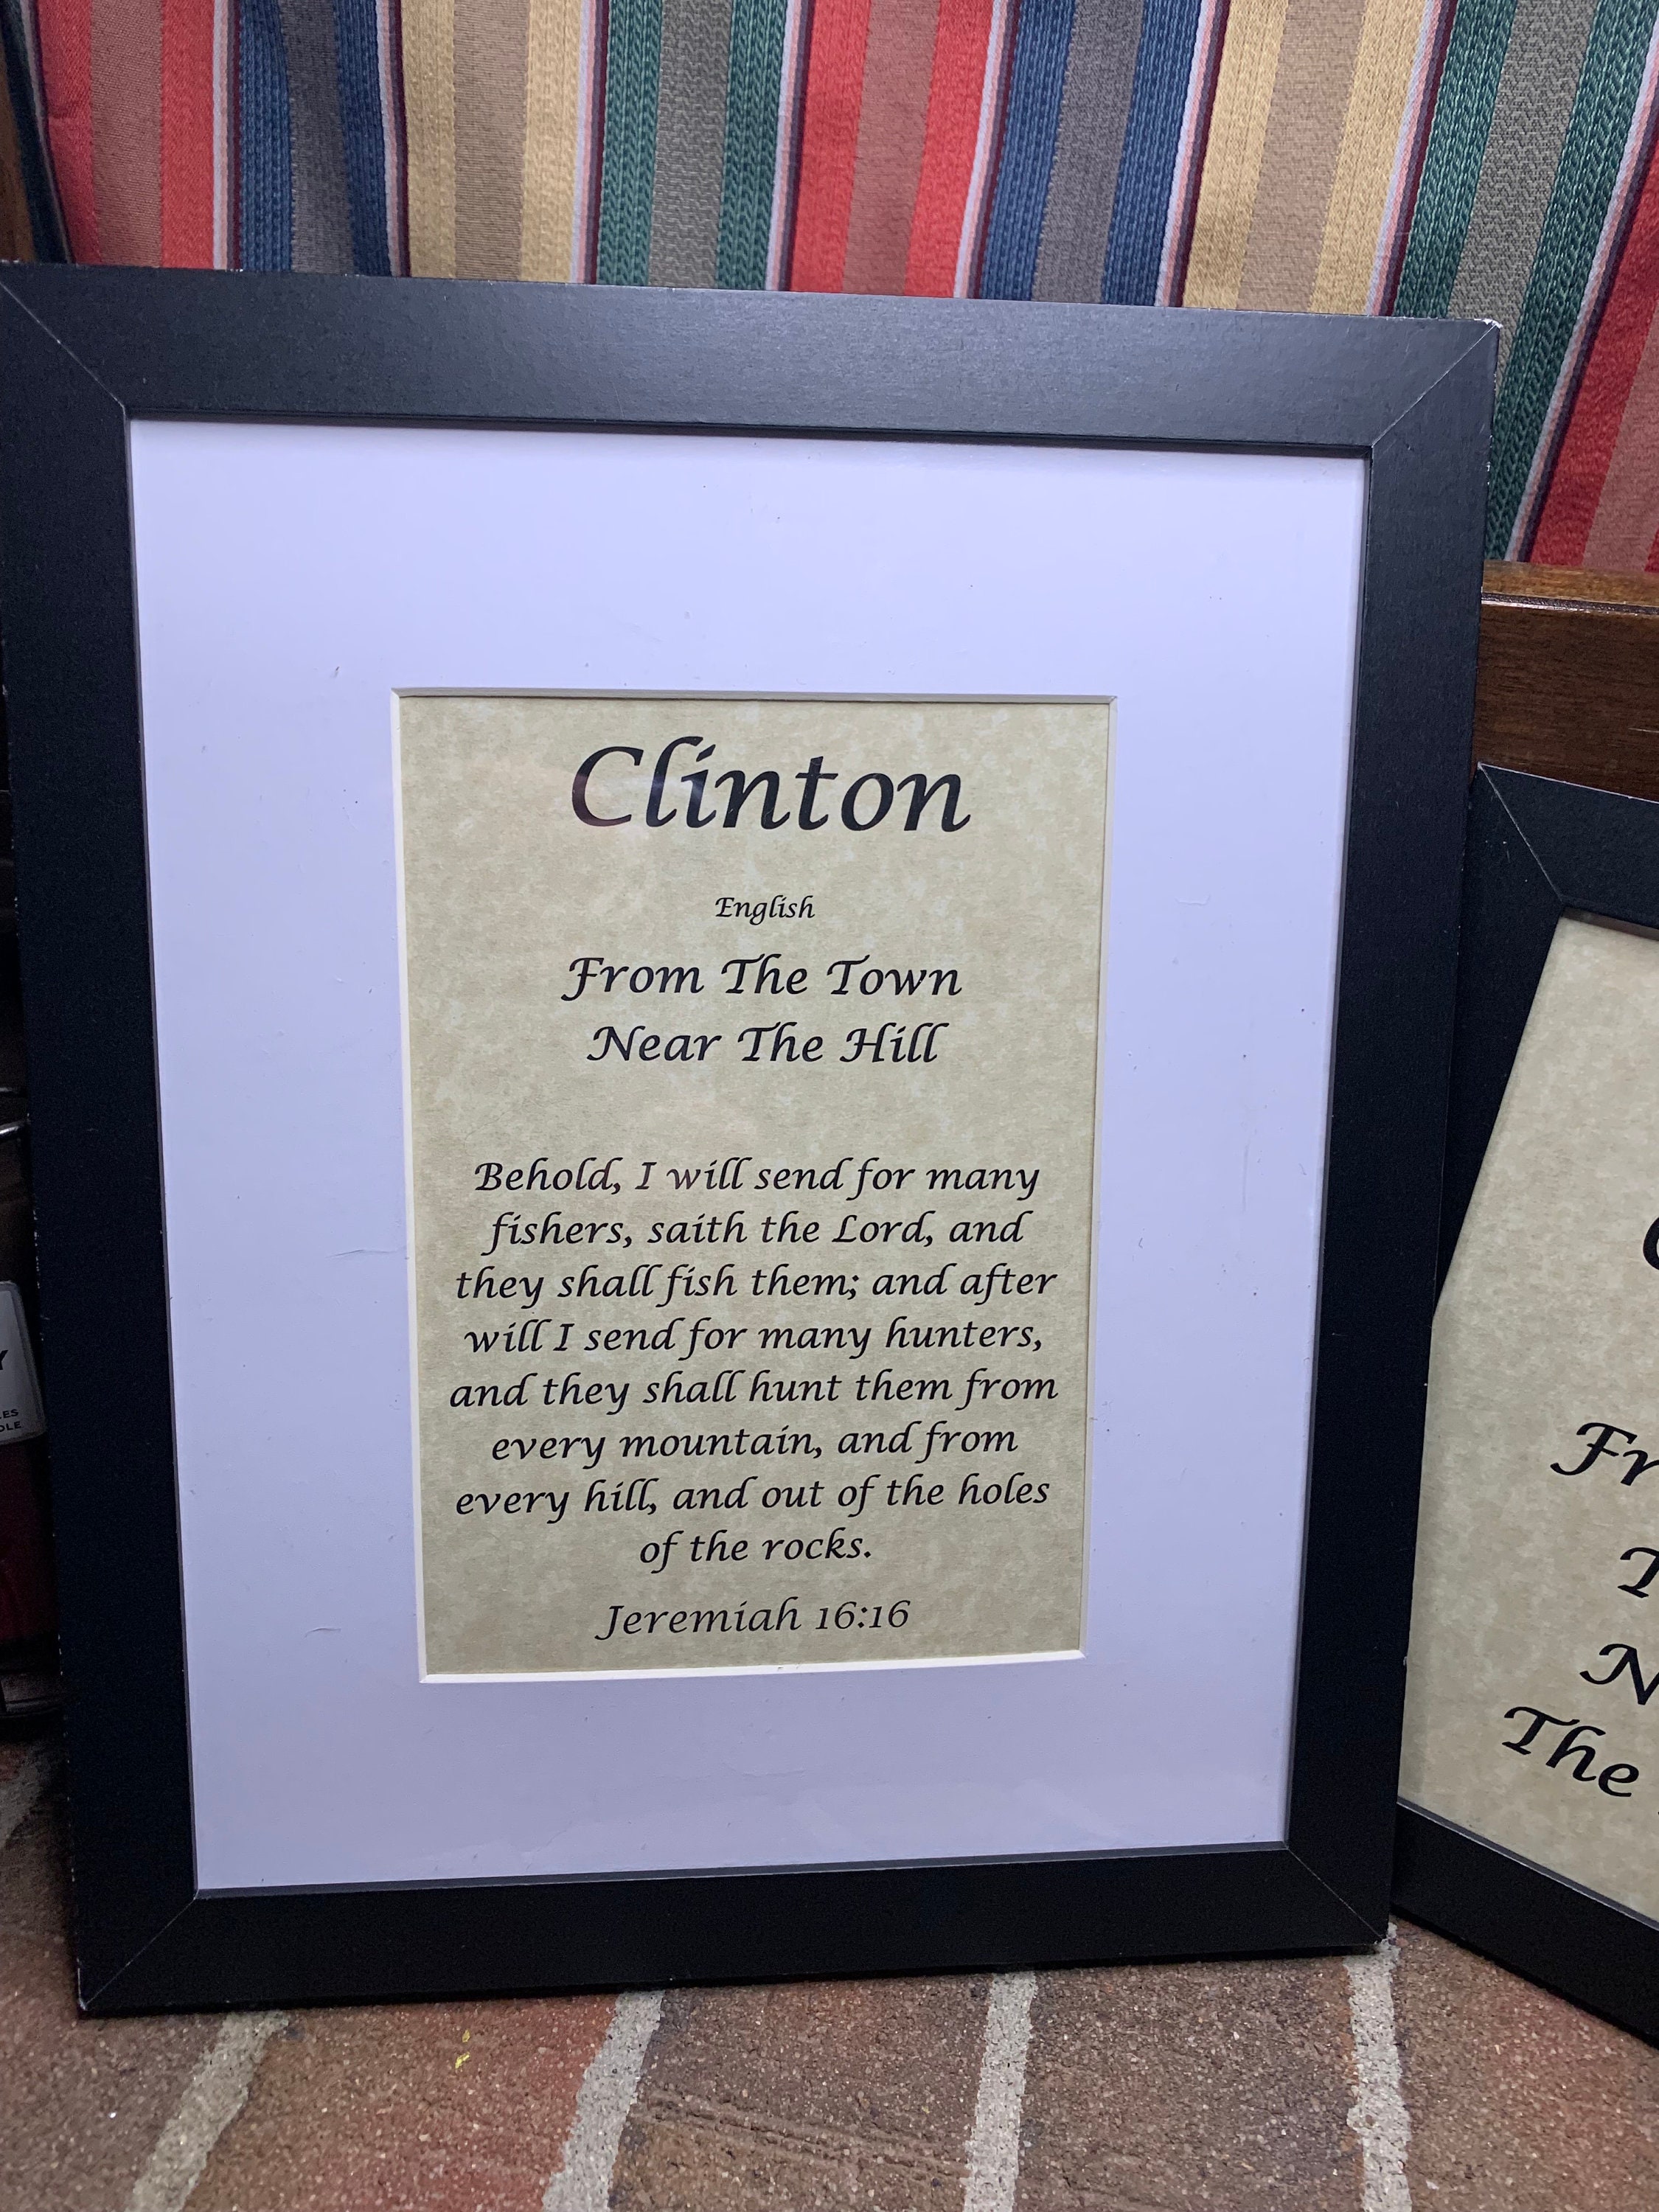 Clinton
English
From The Town
Near The Hill
Behold, I will send for many
fishers, saith the Lord, and
they shall fish them; and after
will I send for many hunters,
and they shall hunt them from
every mountain, and from
every hill, and out of the holes
of the rocks.
Jeremiah 16:16
The